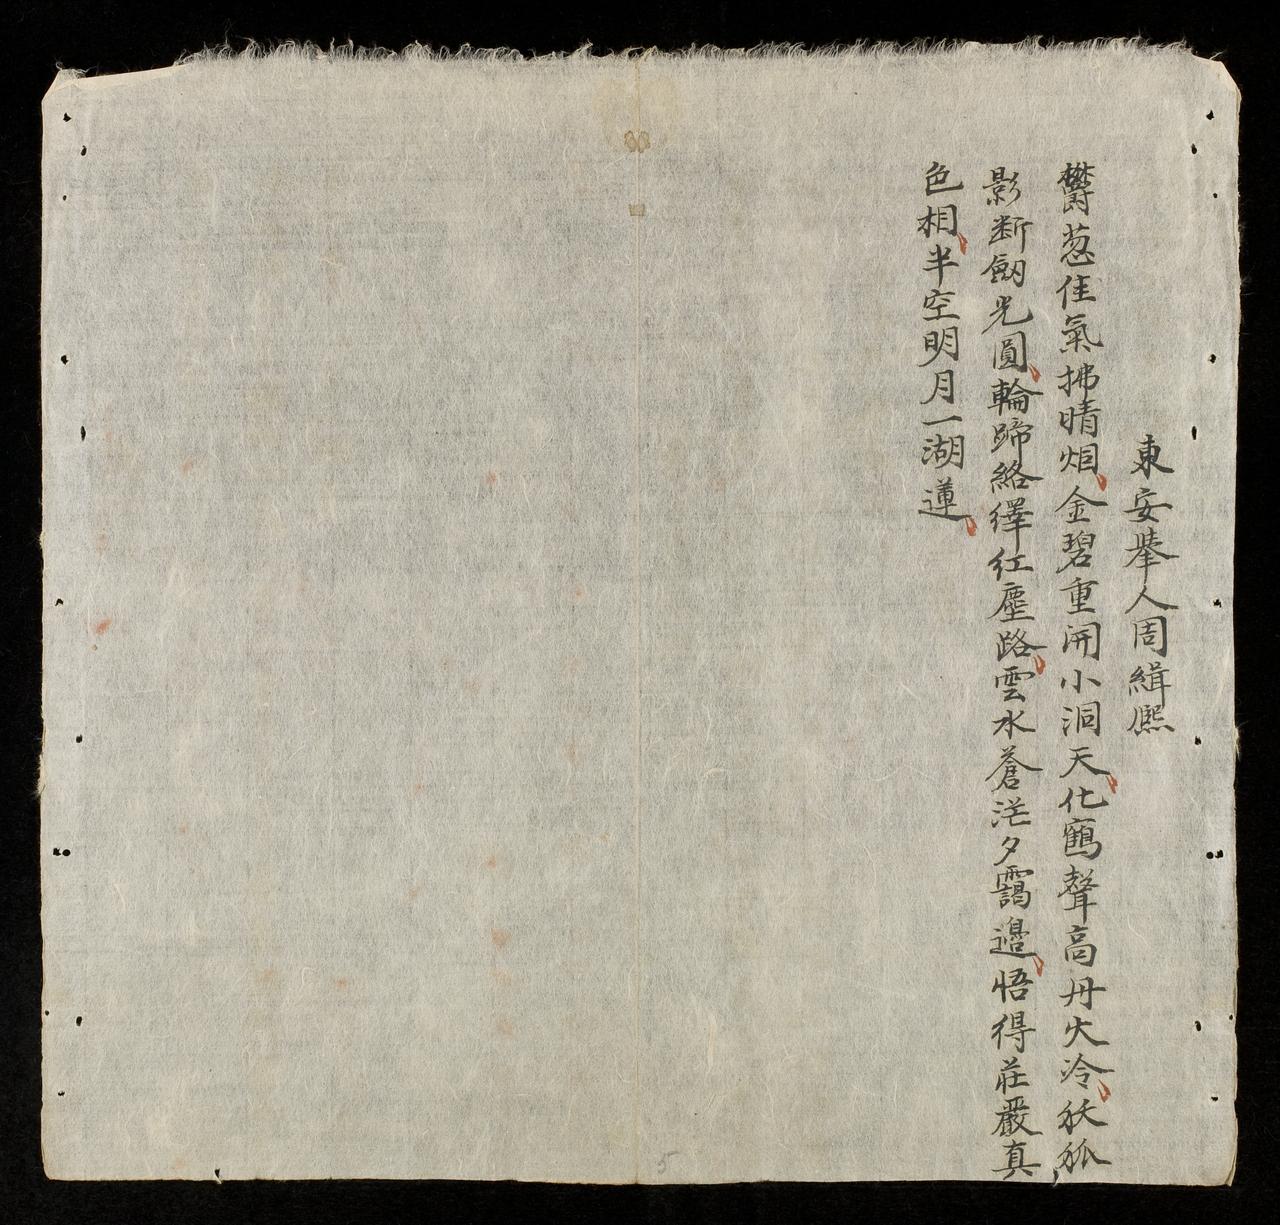 東安舉人周緝熙
欝葱佳氣拂晴烟、金碧重開小洞天、化鶴聲高丹火冷、妖狐
影斷劔光圓、輪蹄絡繹紅塵路、雲水蒼茫夕靄邊、悟得莊嚴真
色相、半空明月一湖蓮、
5